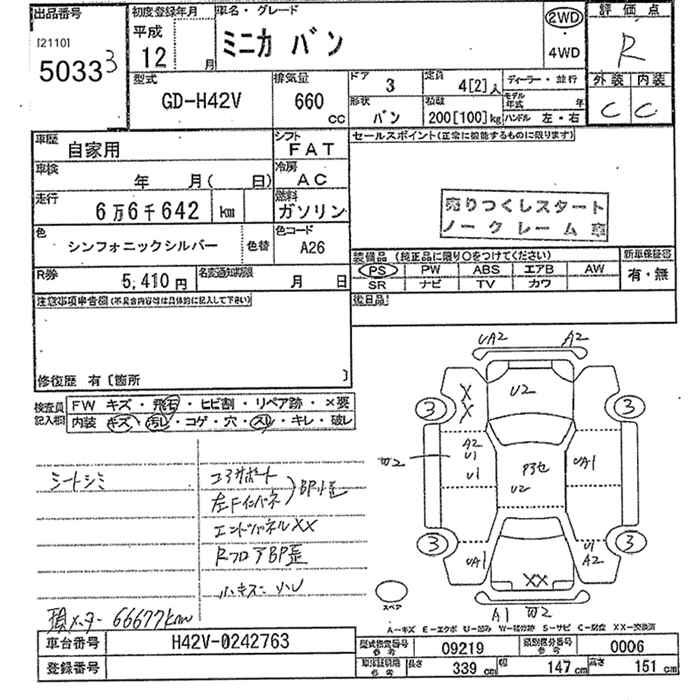 出品番号
[2110]
5033 3
初度登録年月
平成
12 月
車名・グレード
ミニカ バン
2WD
・
4WD
評価点
R
外装 内装
C C
型式
GD-H42V
排気量
660 cc
ドア
3
定員
4[2]人
ディーラー・並行
形状
バン
積載
200[100]kg
モデル年式 年
ハンドル 左・右
車歴
自家用
シフト
FAT
車検
年 月( 日)
冷房
AC
走行
6万6千642 km
燃料
ガソリン
色
シンフォニックシルバー
色替
色コード
A26
R券
5,410円
名変通知期限
月 日
セールスポイント(正常に機能するものに限ります)
売りつくしスタート
ノークレーム車
装備品 (純正品に限り○をつけてください)
PS PW ABS エアB AW
SR ナビ TV カワ
新車保証書
有・無
後日品
注意事項申告欄(不具合内容等は具体的に記入して下さい)
修復歴 有〔箇所 〕
検査員記入欄
FW キズ・飛石・ヒビ割・リペア跡・×要
内装 キズ・汚レ・コゲ・穴・スレ・キレ・破レ
シートシミ
コアサポート
左Fインパネ
BP小歪
エンドパネルXX
RフロアBP歪
小キズ・凹
積メーター 66677km
UA2 A2
X
X
U2
3 3
A2
U1
U1
U2
UA1
3 3
UA1
U1
A2
XX
A1
スペア
A-キズ E-エクボ U-凹み W-補修跡 S-サビ C-腐食 XX-交換済
車台番号
H42V-0242763
登録番号
型式指定番号
参考
09219
類別区分番号
参考
0006
車体証明欄
参考
長さ 339 cm
幅 147 cm
高さ 151 cm